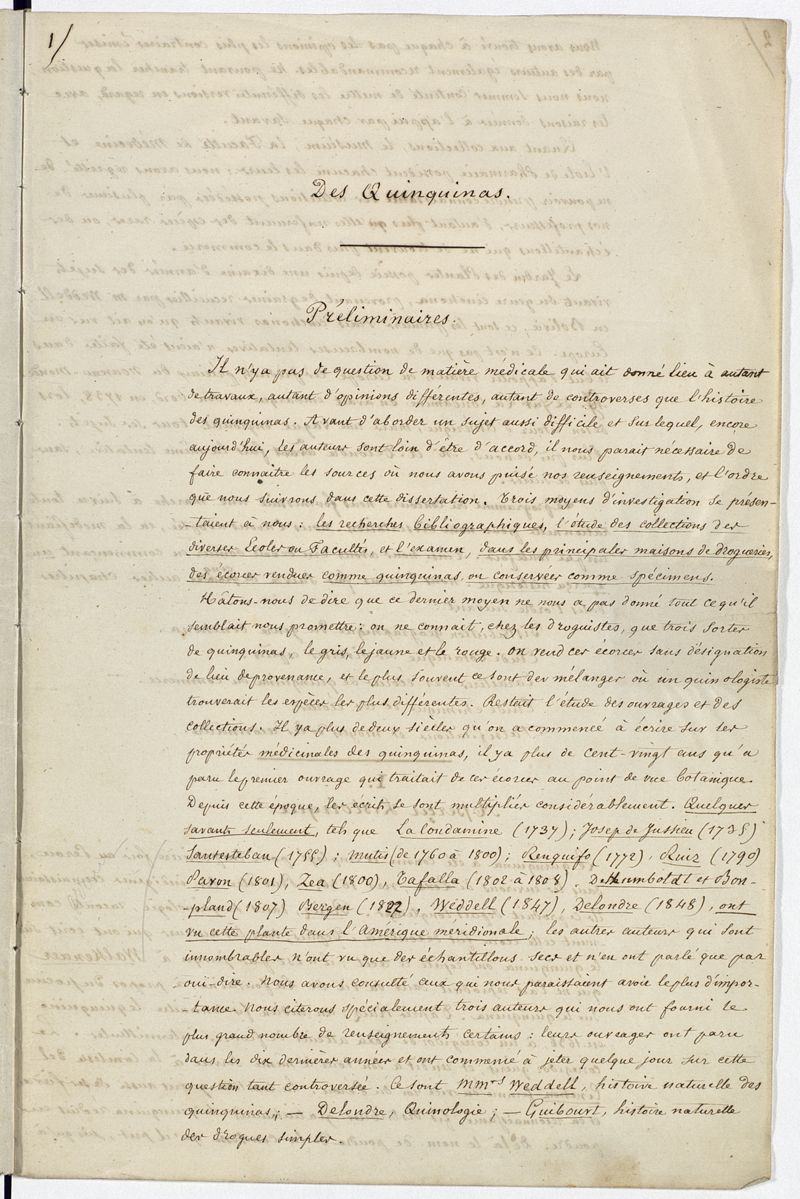 1/
Des Quinquinas.
Préliminaires.
Il n'y a pas de question de matière médicale qui ait donné lieu à autant
de travaux, autant d'opinions différentes, autant de controverses que l'histoire
des quinquinas. Avant d'aborder un sujet aussi difficile et sur lequel, encore
aujourd'hui, les auteurs sont loin d'être d'accord, il nous parait nécessaire de
faire connaitre les sources où nous avons puisé nos renseignements, et l'ordre
que nous suivrons dans cette dissertation. Trois moyens d'investigation se présen-
-taient à nous : les recherches bibliographiques, l'étude des collections des
diverses Ecoles ou Facultés, et l'examen, dans les principales maisons de drogueries,
des écorces vendues comme quinquinas, ou conservées comme spécimens.
Hâtons-nous de dire que ce dernier moyen ne nous a pas donné tout ce qu'il
semblait nous promettre : on ne connait, chez les droguistes, que trois sortes
de quinquinas, le gris, le jaune et le rouge. On vend ces écorces sans désignation
de lieu de provenance, et le plus souvent ce sont des mélanges où un quinologiste
trouverait les espèces les plus différentes. Restait l'étude des ouvrages et des
collections. Il y a plus de deux siècles qu'on a commencé à écrire sur les
propriétés médicinales des quinquinas, il y a plus de cent-vingt ans qu'a
paru le premier ouvrage qui traitait de ces écorces au point de vue botanique.
Depuis cette époque, les écrits se sont multipliés considérablement. Quelques
savants seulement, tels que La Condamine (1737) ; Josep de Jussieu (1735)
Santesteban (1755) ; Mutis (de 1760 à 1800) ; Renquifo (1772), Ruiz (1790)
Pavon (1801), Zea (1800), Tafalla (1802 à 1808). De Humboldt et Bon-
-pland (1807) Bergen (1822), Weddell (1847), Delondre (1848), ont
vu cette plante dans l'Amérique méridionale ; les autres auteurs qui sont
innombrables n'ont vu que des échantillons secs et n'en ont parlé que par
oui-dire. Nous avons consulté ceux qui nous paraissaient avoir le plus d'impor-
-tance. Nous citerons spécialement trois auteurs qui nous ont fourni le
plus grand nombre de renseignements certains : leurs ouvrages ont paru
dans les dix dernières années et ont commencé à jeter quelque jour sur cette
question tant controversée. Ce sont MMrs Weddell, histoire naturelle des
quinquinas ; — Delondre, Quinologie ; — Guibourt, histoire naturelle
des drogues simples.